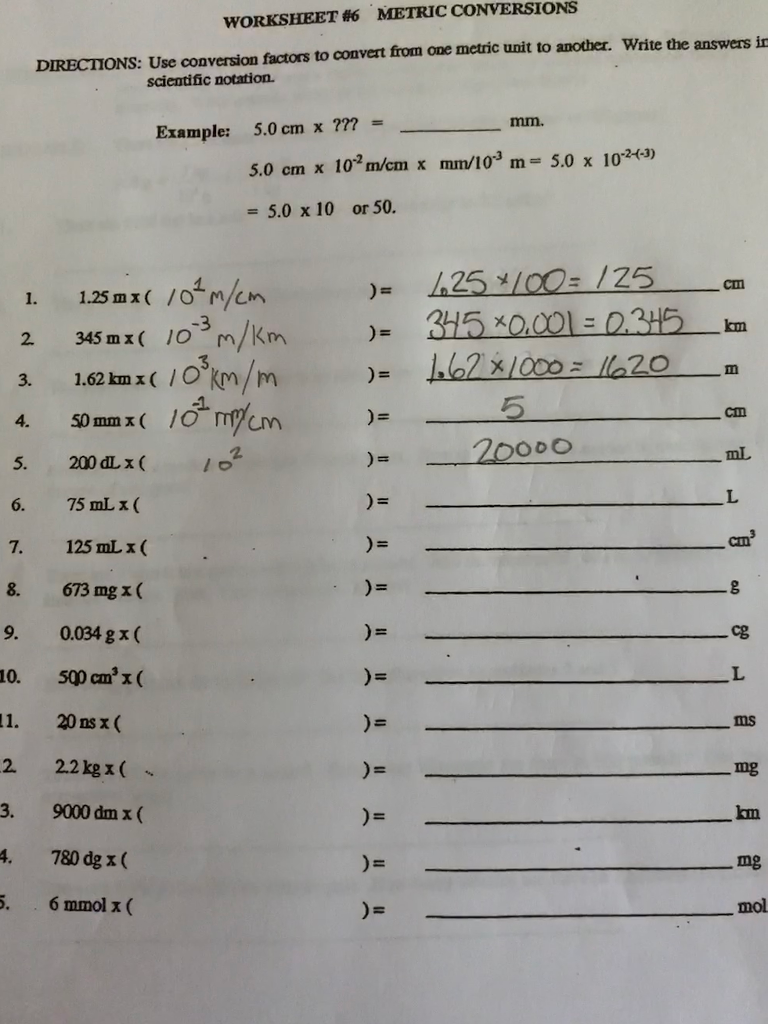 WORKSHEET #6 METRIC CONVERSIONS
DIRECTIONS: Use conversion factors to convert from one metric unit to another. Write the answers in
scientific notation.
Example: 5.0 cm x ??? = ________ mm.
5.0 cm x 10⁻² m/cm x mm/10⁻³ m = 5.0 x 10⁻²⁻⁽⁻³⁾
= 5.0 x 10 or 50.
1. 1.25 m x ( 10¹ m/cm ) = 1.25 × 100 = 125 cm
2. 345 m x ( 10⁻³ m/km ) = 345 × 0.001 = 0.345 km
3. 1.62 km x ( 10³ km/m ) = 1.62 × 1000 = 1620 m
4. 50 mm x ( 10⁻¹ mm/cm ) = 5 cm
5. 200 dL x ( 10² ) = 20000 mL
6. 75 mL x ( ) = ________ L
7. 125 mL x ( ) = ________ cm³
8. 673 mg x ( ) = ________ g
9. 0.034 g x ( ) = ________ cg
10. 500 cm³ x ( ) = ________ L
11. 20 ns x ( ) = ________ ms
2. 2.2 kg x ( ) = ________ mg
3. 9000 dm x ( ) = ________ km
4. 780 dg x ( ) = ________ mg
5. 6 mmol x ( ) = ________ mol